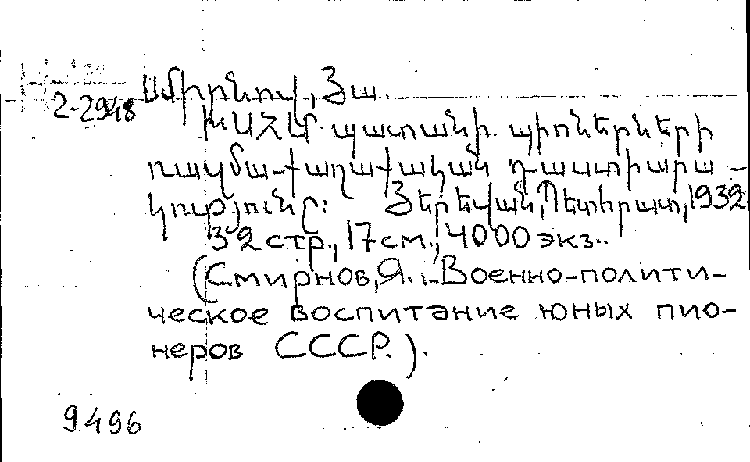 Սմիրնով, Յա.
2-2948
ԽՍՀՄ պատանի պիոներների
ռազմա-քաղաքական դաստիարա-
կությունը: Յերեվան, Պետհրատ, 1932
32 стр., 17 см., 4000 экз..
(Смирнов, Я. Военно-полити-
ческое воспитание юных пио-
неров СССР.).
9496